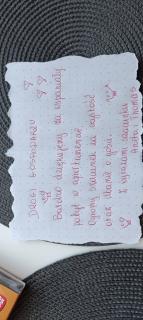 DRODZY GOSPODARZU
Bardzo dziękujemy za wspaniały
pobyt w apartamencie
Ogromny szacunek za czystość
oraz dbanie o gości.
Z wyrazami szacunku
Aneta i Thomas